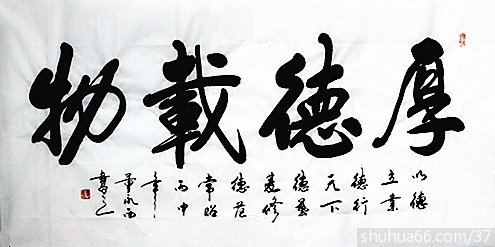 厚德載物
以德
立業
德行
天下
德藝
修
德范
常昭
丙申
年
書
shuhua66.com/37